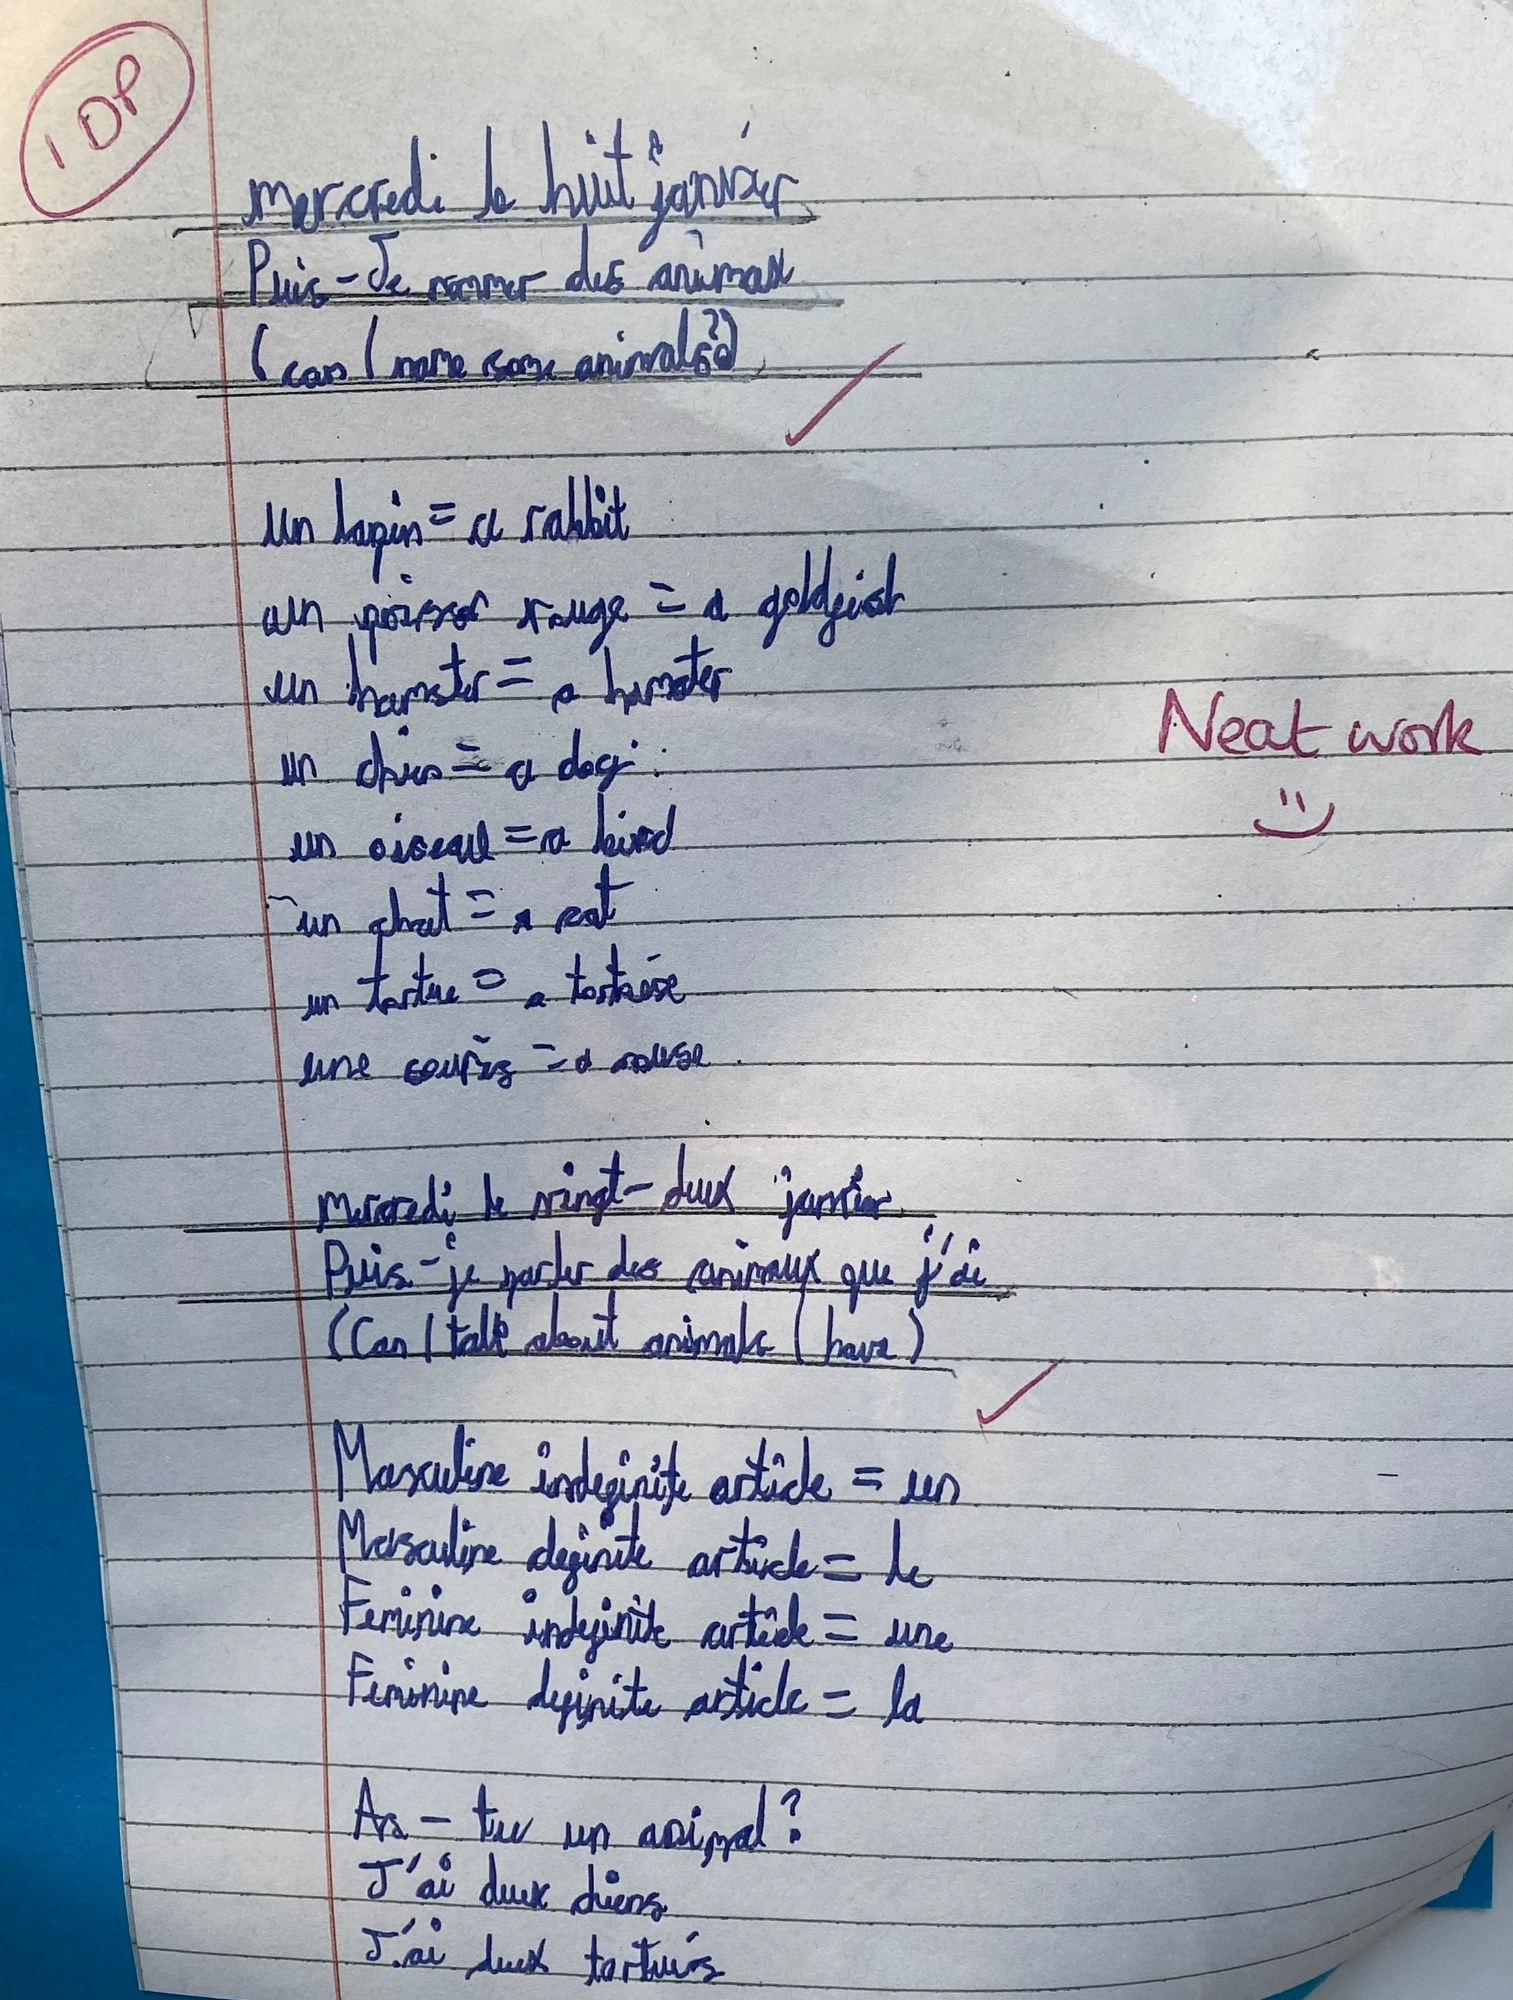 1 DP
mercredi le huit janvier
Puis-Je nommer des animax
(can I name some animals?)
un lapin = a rabbit
un poisson rouge = a goldfish
un hamster = a hamster
un chien = a dog
un oiseau = a bird
un chat = a cat
un tortue = a tortoise
une souris = a mouse
Neat work
mercredi le vingt-deux janvier
Puis-je parler des animaux que j'ai
(Can I talk about animals I have)
Masculine indefinite article = un
Masculine definite article = le
Feminine indefinite article = une
Feminine definite article = la
As-tu un animal?
J'ai deux chiens
J'ai deux